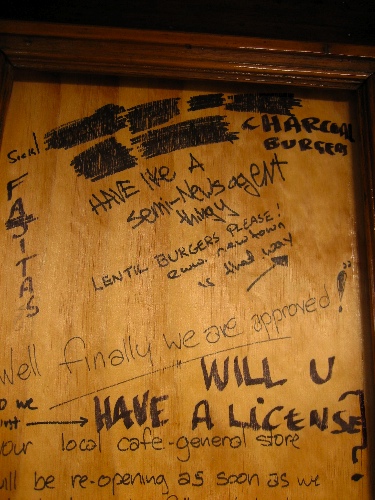 CHARCOAL
BURGERS
Sick!
FAJITAS
HAVE like A
semi-Newsagent
thingy
LENTIL BURGERS PLEASE!
eww. newtown
is that way
Well finally we are approved!"
WILL U
HAVE A LICENSE
your local cafe-general store
will be re-opening as soon as we